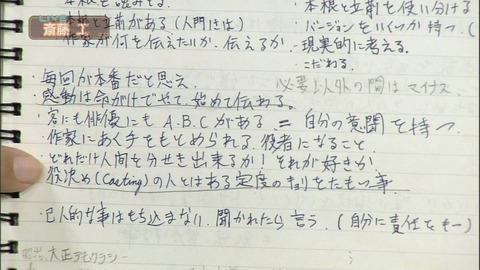 LIVE 斎藤 工
本根と立前がある(人間とは)
本根と立前を使い分ける
・バージョンをいくつか持つ.(
作家が何を伝えたいか.伝えるか
・現実的に考える.
・こだわる.
・毎回が本番だと思え.
必要以外の間はマイナス
・感動は命がけでやって,始めて伝わる.
・客にも俳優にも A.B.Cがある = 自分の意図を持つ.
・作家にあく手をもとめられる.役者になること.
・どれだけ人間を分せき出来るか!それが好きか.
・役決め(Casting)の人とはある定度のキョリをたもつ事.
・己人的な事はもち込まない.聞かれたら言う.(自分に責任をもー)
大正デモクラシー